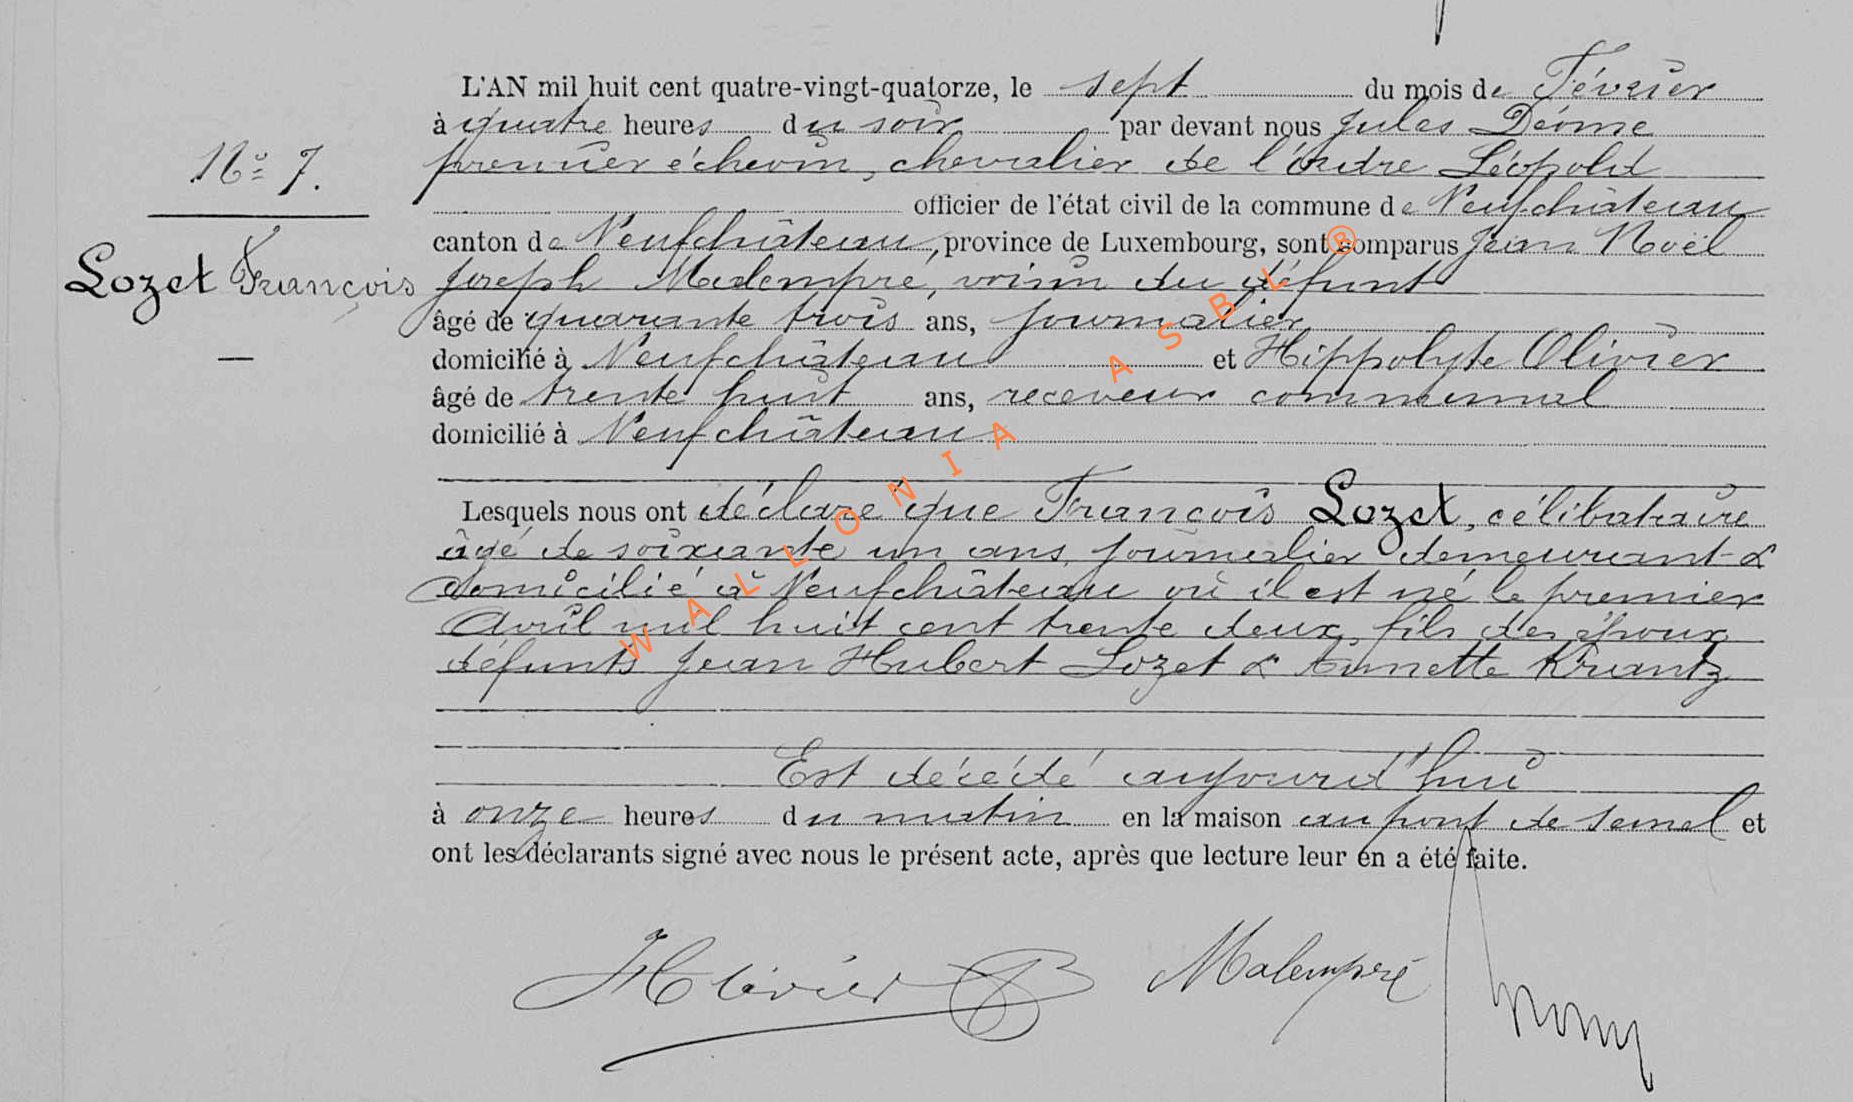 L'AN mil huit cent quatre-vingt-quatorze, le sept du mois de Février
à quatre heures du soir par devant nous Jules Déome
premier échevin, chevalier de l'ordre Léopold
officier de l'état civil de la commune de Neufchâteau
canton de Neufchâteau, province de Luxembourg, sont comparus Jean Noël
Joseph Malempré, voisin du défunt
âgé de quarante trois ans, journalier
domicilié à Neufchâteau et Hippolyte Olivier
âgé de trente huit ans, receveur communal
domicilié à Neufchâteau
Nº 7.
Lozet François
Lesquels nous ont déclaré que François Lozet, célibataire
âgé de soixante un ans, journalier demeurant &
domicilié à Neufchâteau où il est né le premier
Avril mil huit cent trente deux, fils des époux
défunts Jean Hubert Lozet & Annette Krantz
Est décédé aujourd'hui
à onze heures du matin en la maison au pont de Semel et
ont les déclarants signé avec nous le présent acte, après que lecture leur en a été faite.
HOlivier Malempré
WALLONIA ASBL ®